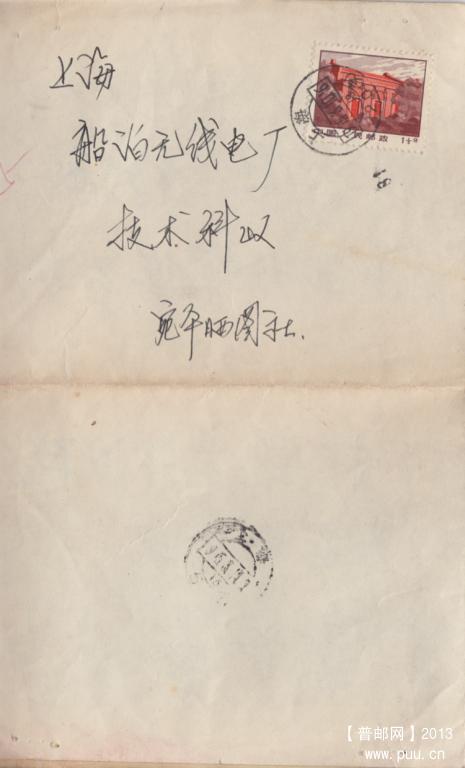 上海
船泊无线电厂
技术科收
宛平晒图社.
中国人民邮政 1½分
【普邮网】2013
www.puu.cn